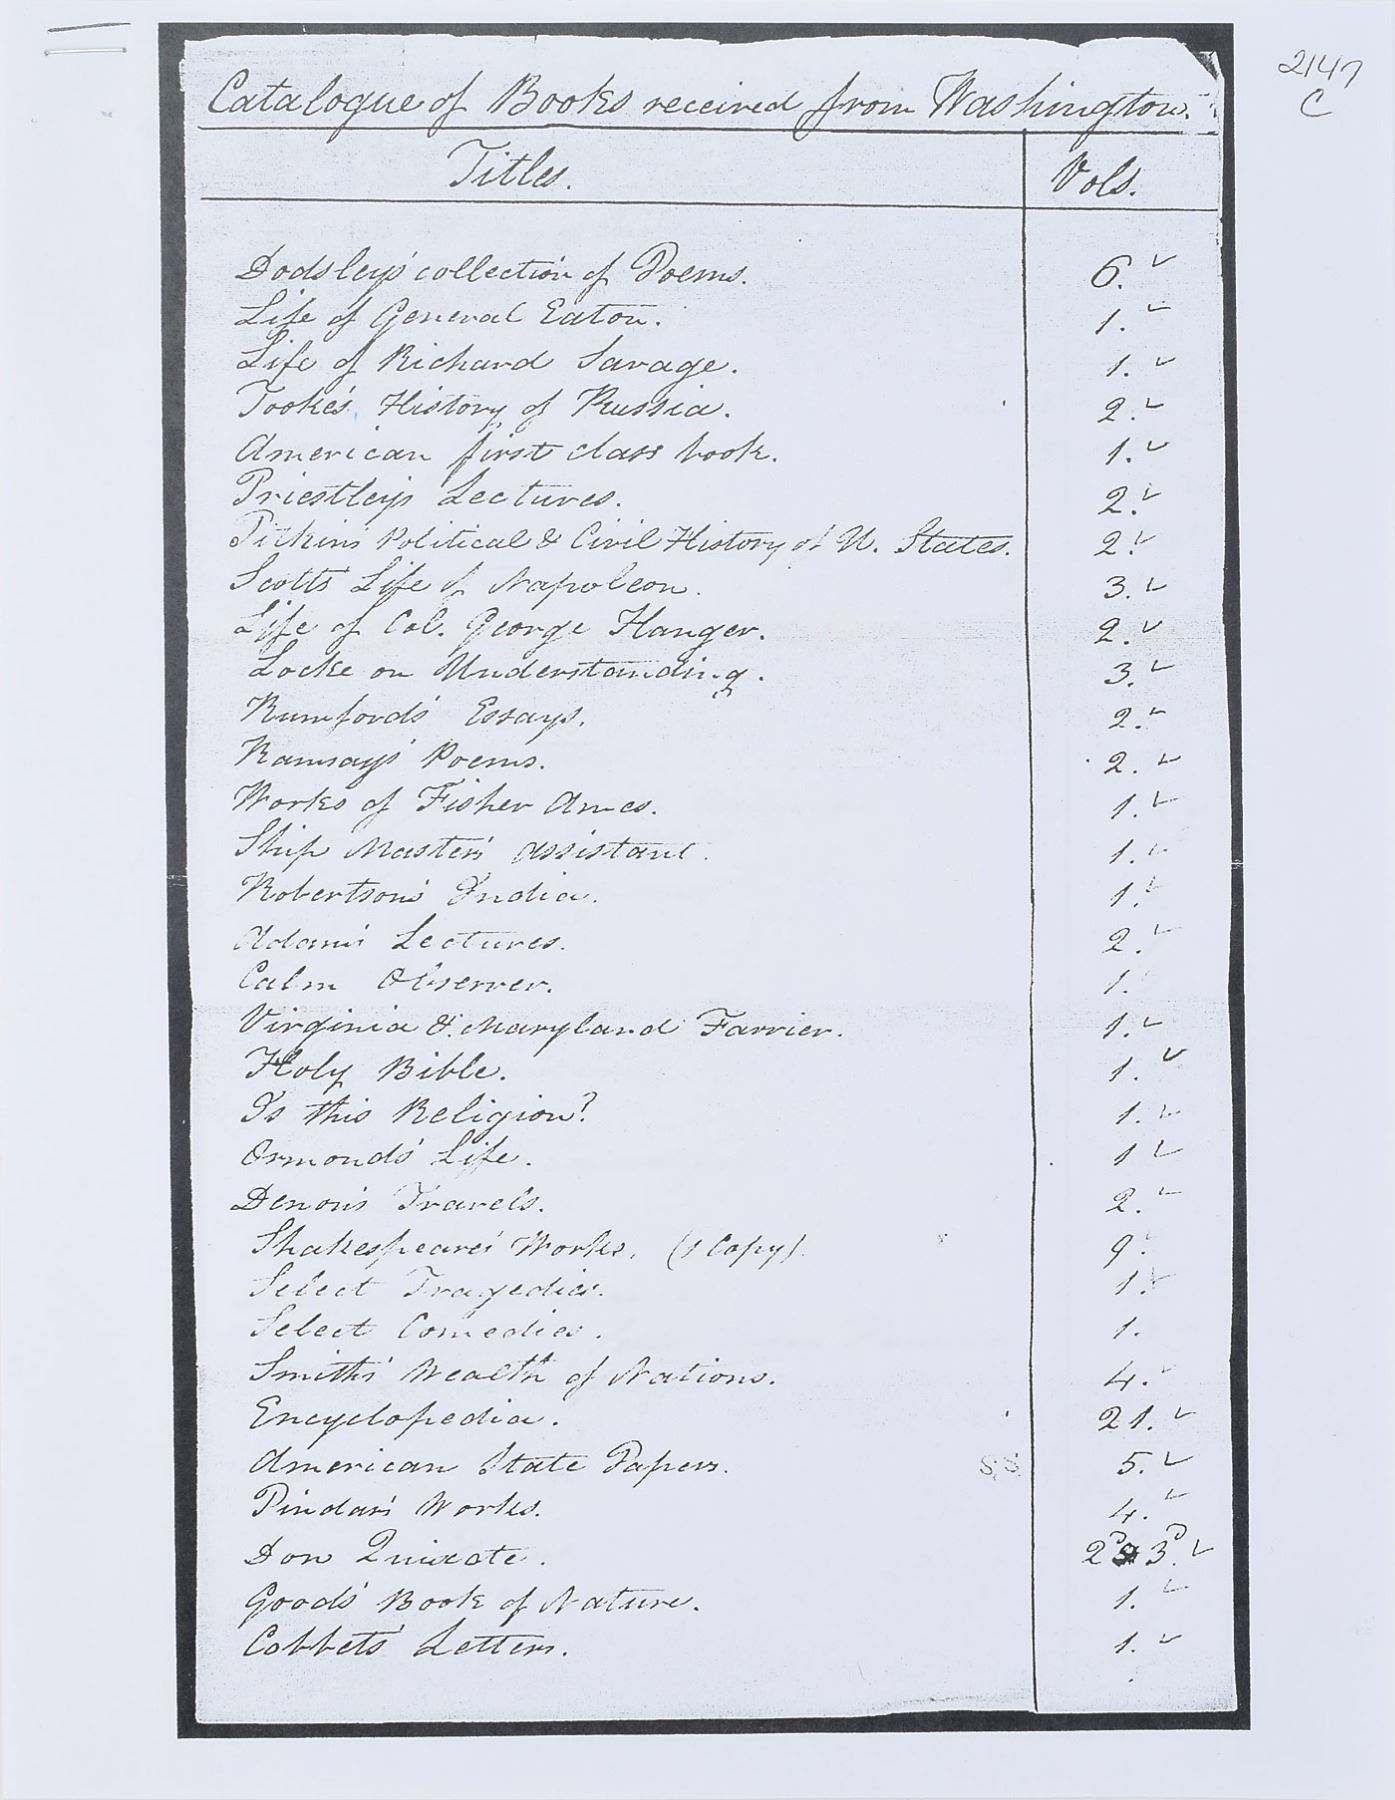 2147
C
Catalogue of Books received from Washington.
Titles. Vols.
Dodsley's collection of Poems. 6. ✓
Life of General Eaton. 1. ✓
Life of Richard Savage. 1. ✓
Tooke's History of Russia. 2. ✓
American first class book. 1. ✓
Priestley's Lectures. 2. ✓
Pitkin's Political & Civil History of U. States. 2. ✓
Scott's Life of Napoleon. 3. ✓
Life of Col. George Hanger. 2. ✓
Locke on Understanding. 3. ✓
Rumford's Essays. 2. ✓
Ramsay's Poems. 2. ✓
Works of Fisher Ames. 1. ✓
Ship Master's assistant. 1. ✓
Robertson's India. 1. ✓
Adam's Lectures. 2. ✓
Calm Observer. 1.
Virginia & Maryland Farrier. 1. ✓
Holy Bible. 1. ✓
Is this Religion? 1. ✓
Ormond's Life. 1 ✓
Denon's Travels. 2. ✓
Shakespeare's Works. (1 Copy). 9.
Select Tragedies. 1. ✓
Select Comedies. 1.
Smith's Wealth of Nations. 4. ✓
Encyclopedia. 21. ✓
American State Papers. S.S. 5. ✓
Pindar's Works. 4. ✓
Don Quixote. 2d 3d. ✓
Good's Book of Nature. 1. ✓
Cobbet's Letters. 1. ✓